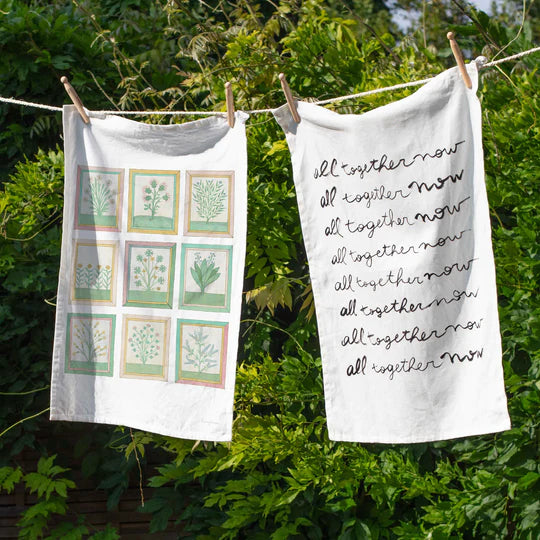 all together now
all together now
all together now
all together now
all together now
all together now
all together now
all together now